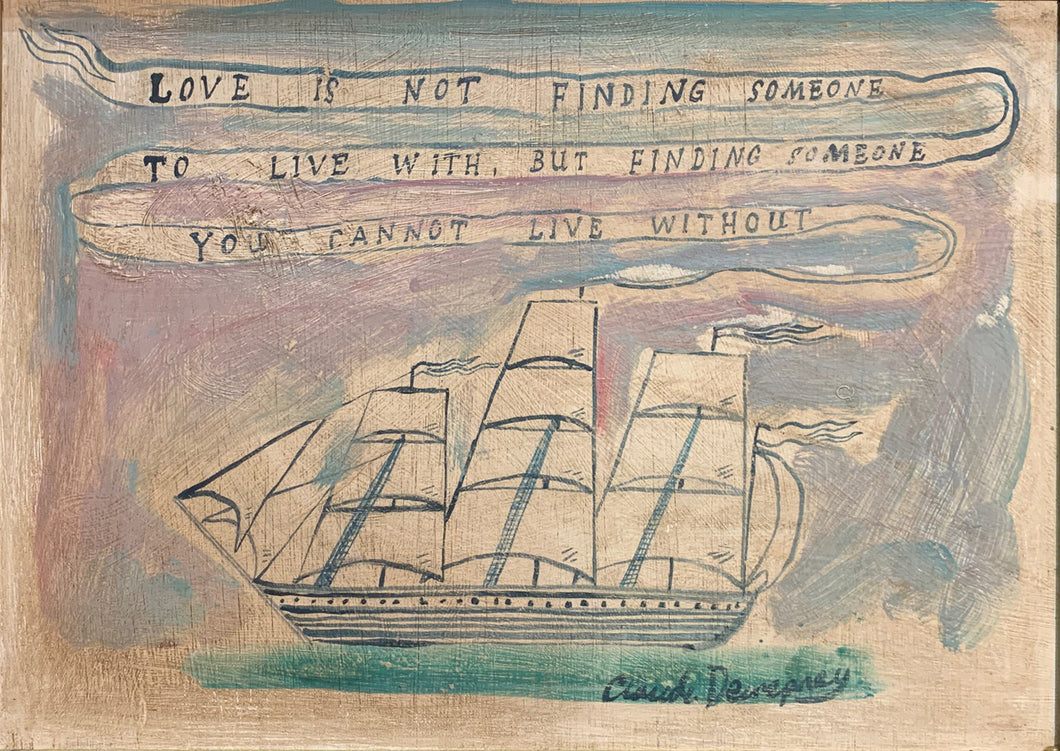 LOVE IS NOT FINDING SOMEONE
TO LIVE WITH, BUT FINDING SOMEONE
YOU CANNOT LIVE WITHOUT